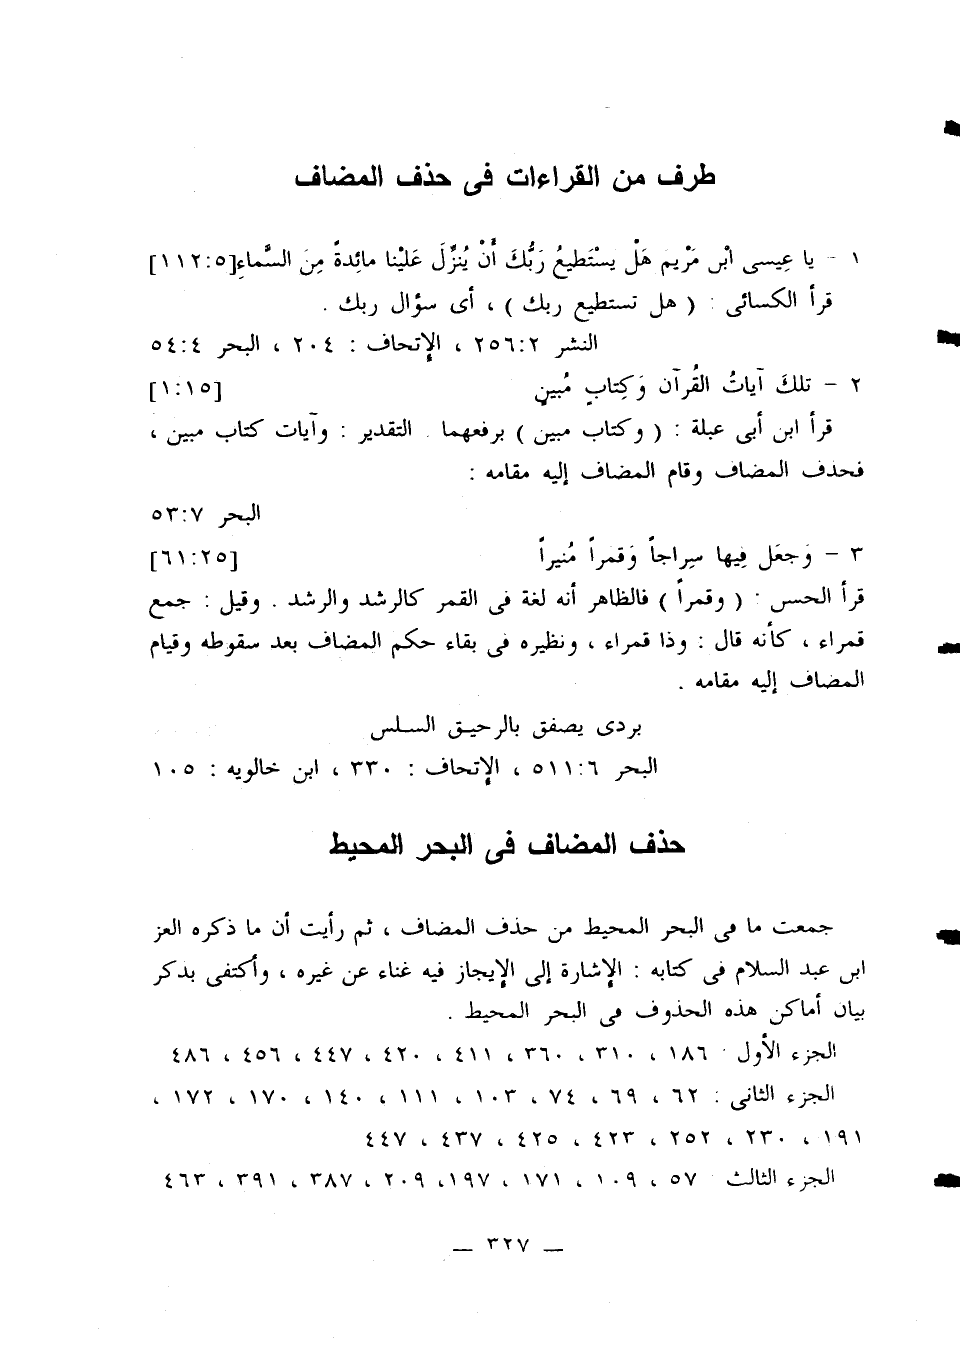 طرف من القراءات فى حذف المضاف
١ - يا عِيسى ابْن مَرْيم هَلْ يسْتَطيعُ رَبُّكَ أَنْ يُنزِّلَ عَلَيْنا مائِدةً مِنَ السَّماءِ [١١٢:٥]
قرأ الكسائى : ( هل تستطيع ربك ) ، أى سؤال ربك .
النشر ٢٥٦:٢ ، الإتحاف : ٢٠٤ ، البحر ٥٤:٤
٢ - تلكَ آياتُ القُرآن وَكِتابٍ مُبينٍ [١:١٥]
قرأ ابن أبى عبلة : ( وكتاب مبين ) برفعهما . التقدير : وآيات كتاب مبين ،
فحذف المضاف وقام المضاف إليه مقامه :
البحر ٥٣:٧
٣ - وَجعَل فِيها سِراجاً وَقمراً مُنيراً [٦١:٢٥]
قرأ الحسن : ( وقمراً ) فالظاهر أنه لغة فى القمر كالرشد والرشد . وقيل : جمع
قمراء ، كأنه قال : وذا قمراء ، ونظيره فى بقاء حكم المضاف بعد سقوطه وقيام
المضاف إليه مقامه .
بردى يصفق بالرحيق السلس
البحر ٥١١:٦ ، الإتحاف : ٣٣٠ ، ابن خالويه : ١٠٥
حذف المضاف فى البحر المحيط
جمعت ما فى البحر المحيط من حذف المضاف ، ثم رأيت أن ما ذكره العز
ابن عبد السلام فى كتابه : الإشارة إلى الإيجاز فيه غناء عن غيره ، وأكتفى بذكر
بيان أماكن هذه الحذوف فى البحر المحيط .
الجزء الأول : ١٨٦ ، ٣١٠ ، ٣٦٠ ، ٤١١ ، ٤٢٠ ، ٤٤٧ ، ٤٥٦ ، ٤٨٦
الجزء الثانى : ٦٢ ، ٦٩ ، ٧٤ ، ١٠٣ ، ١١١ ، ١٤٠ ، ١٧٠ ، ١٧٢ ،
١٩١ ، ٢٣٠ ، ٢٥٢ ، ٤٢٣ ، ٤٢٥ ، ٤٣٧ ، ٤٤٧
الجزء الثالث : ٥٧ ، ١٠٩ ، ١٧١ ، ١٩٧ ، ٢٠٩ ، ٣٨٧ ، ٣٩١ ، ٤٦٣
— ٣٢٧ —